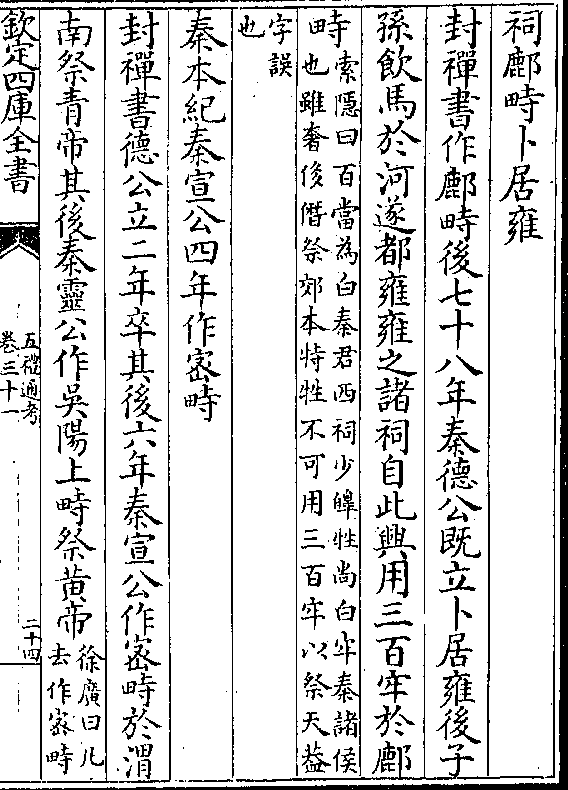 祠鄜畤卜居雍
封禪書作鄜畤後七十八年秦德公既立卜居雍後子
孫飲馬於河遂都雍雍之諸祠自此興用三百牢於鄜
畤索隱曰百當為白秦君西祠少皡牲尚白牢秦諸侯
也雖奢侈僭祭郊本特牲不可用三百牢以祭天葢
字誤
也
秦本紀秦宣公四年作宻畤
封禪書德公立二年卒其後六年秦宣公作宻畤於渭
南祭青帝其後秦靈公作吳陽上畤祭黄帝
徐廣曰凡
去作宻畤
欽定四庫全書
五禮通考
卷三十一
二十四